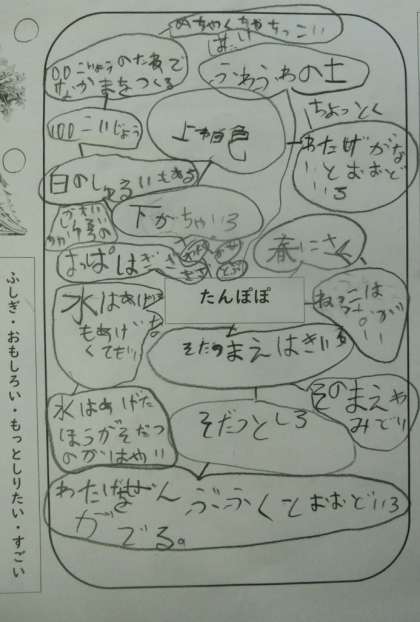 めちゃくちゃちっこい
100こいじょうのたねで
なかまをつくる
ふわふわの土
100こいじょう
上が白色
ちょっとく
わたげがな
いとおおど
いろ
白のしゅるいもある
下がちゃいろ
はっぱはぎざ
ぎざ
春にさく
たんぽぽ
ねっこは
ながい
水はあげ
もあげな
くてもいい
そだつまえはきいろ
そのまえは
みどり
水はあげた
ほうがそだつ
のがはやい
そだつとしろ
わたげ
ぶふくとおおどいろ
がでる。
ふしぎ・おもしろい・もっとしりたい・すごい